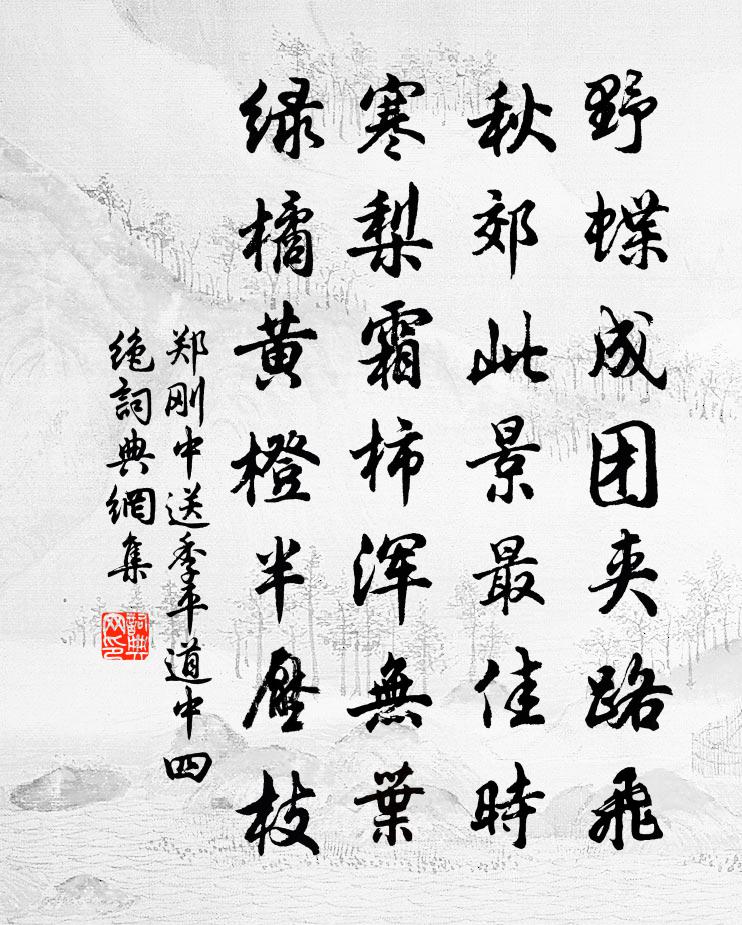 野蝶成团夹路飛
秋郊此景最佳時
寒梨霜柿浑無葉
绿橘黄橙半壓枝
郑刚中送季平道中四
绝詞典網集
詞典
网印